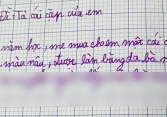 Đề: Tả cái cặp của em
năm học, mẹ mua cho em một cái c
màu nâu, được làm bằng da, bà